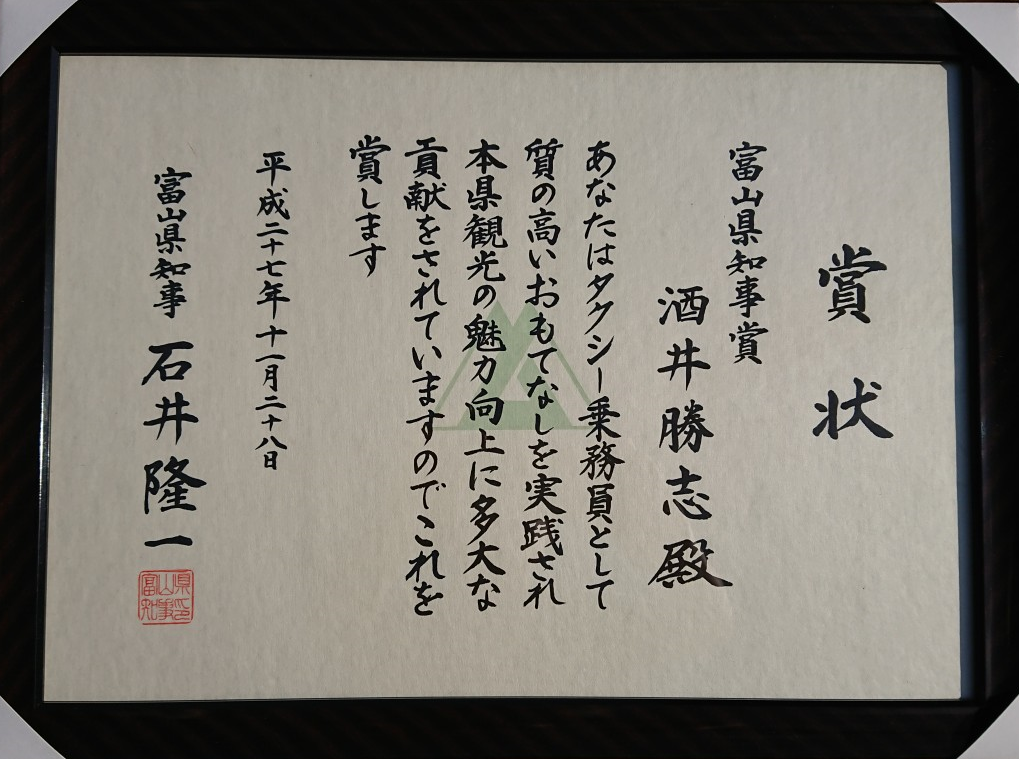 賞状
富山県知事賞
酒井勝志殿
あなたはタクシー乗務員として
質の高いおもてなしを実践され
本県観光の魅力向上に多大な
貢献をされていますのでこれを
賞します
平成二十七年十一月二十八日
富山県知事 石井隆一
富山県知事印